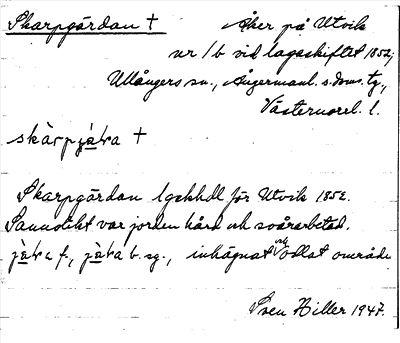 Skarpgärdan † Åker på Utvik
nr 1 b vid lagaskiftet 1852,
Ullångers sn., Ångermanl. s. doms. tg.,
Västernorrl. l.
skàrpjàra †
Skarpgärdan lgskhdl för Utvik 1852.
Sannolikt var jorden hård och svårarbetad.
jàra f., jàra b. sg., inhägnat och odlat område
Sven Hiller 1947.